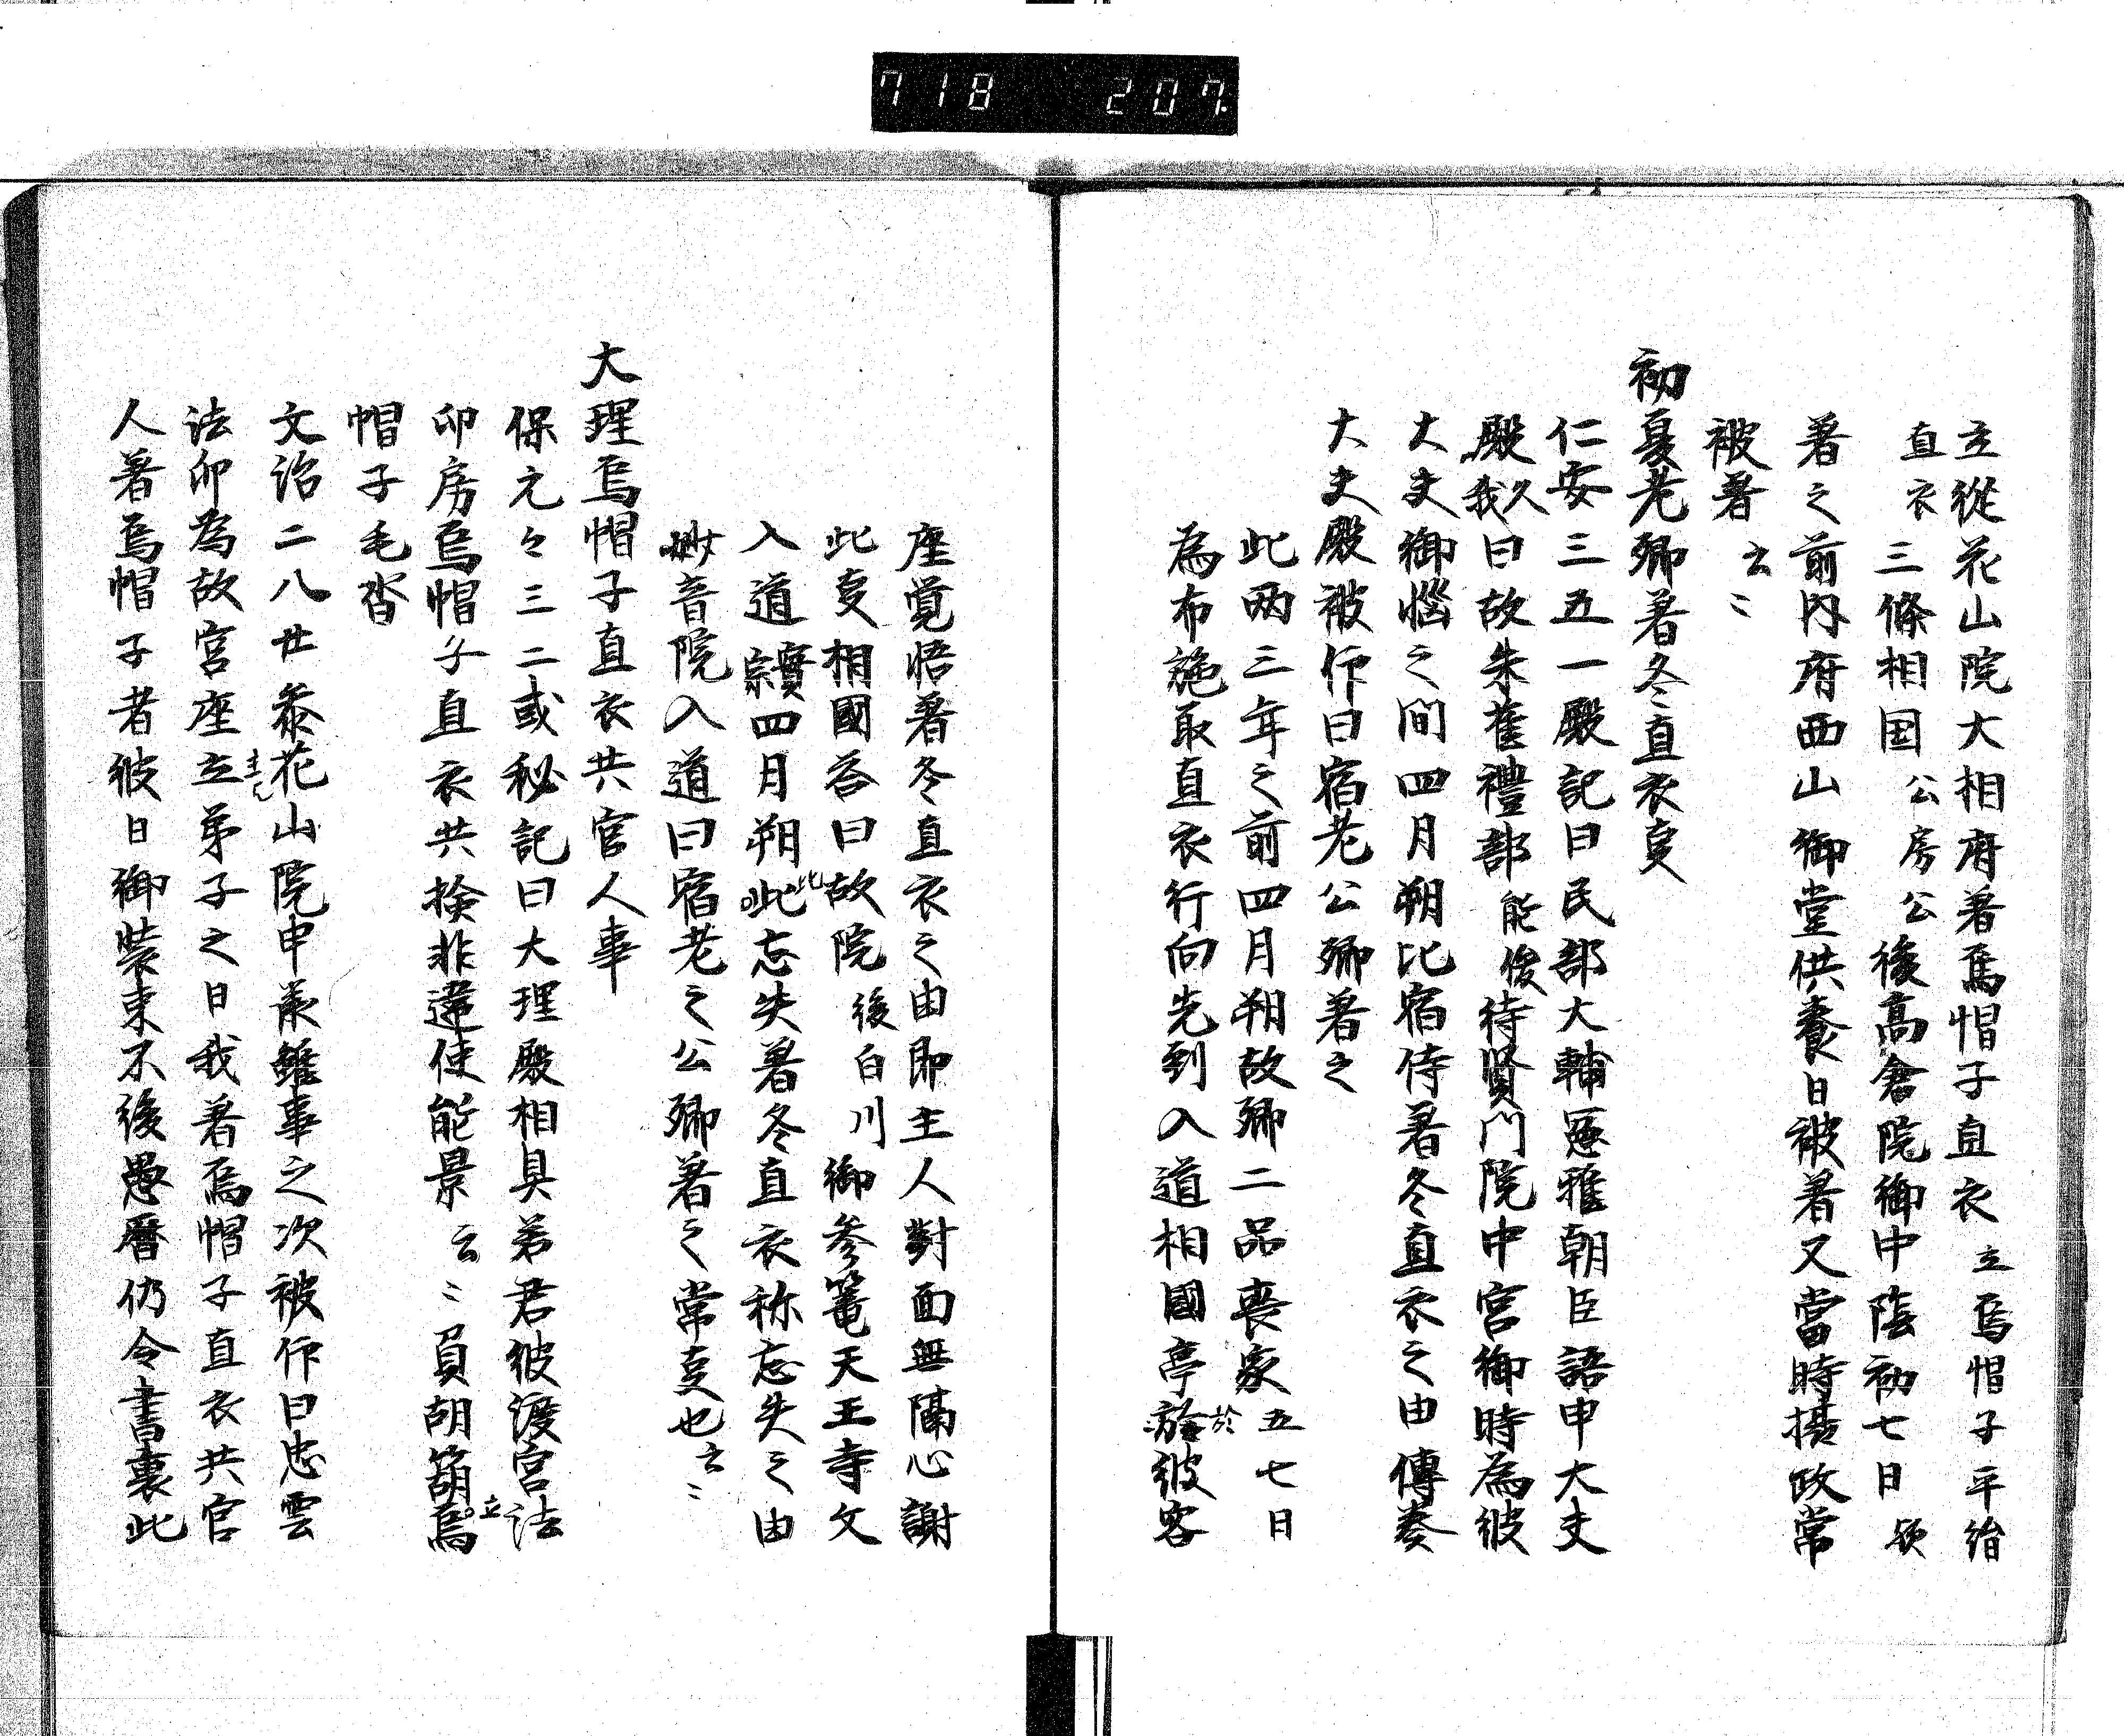 718 207
立從花山院大相府著烏帽子直衣立烏帽子平絹
直衣三條相国公房公後高倉院御中陰初七日
著之前内府西山御堂供養日被著又當時摂政常
被著云〻
初夏老卿著冬直衣㕝
仁安三五一殿記曰民部大輔憲雅朝臣語申大夫
殿久我曰故朱雀禮部能俊待賢門院中宮御時為彼
大夫御悩之間四月朔比宿侍著冬直衣之由傳奏
大夫殿被仰曰宿老公卿著之
此两三年之前四月朔故卿二品喪家五七日
為布施取直衣行向先到入道相國亭於彼客
座覚悟著冬直衣之由即主人對面無隔心謝
此㕝相國答曰故院後白川御参篭天王寺文
入道實宗四月朔比忘失著冬直衣称忘失之由
妙音院入道曰宿老之公卿著之常㕝也云〻
大理烏帽子直衣共官人事
保元々三二或秘記曰大理殿相具弟君彼渡宮法
印房烏帽子直衣共撿非違使能景云〻負胡籙立烏
帽子毛沓
文治二八廿参花山院申承雑事之次被仰曰忠雲
法印為故宮座主弟子之日我著烏帽子直衣共官
人著烏帽子者彼日御装束不後愚暦仍令書裏此